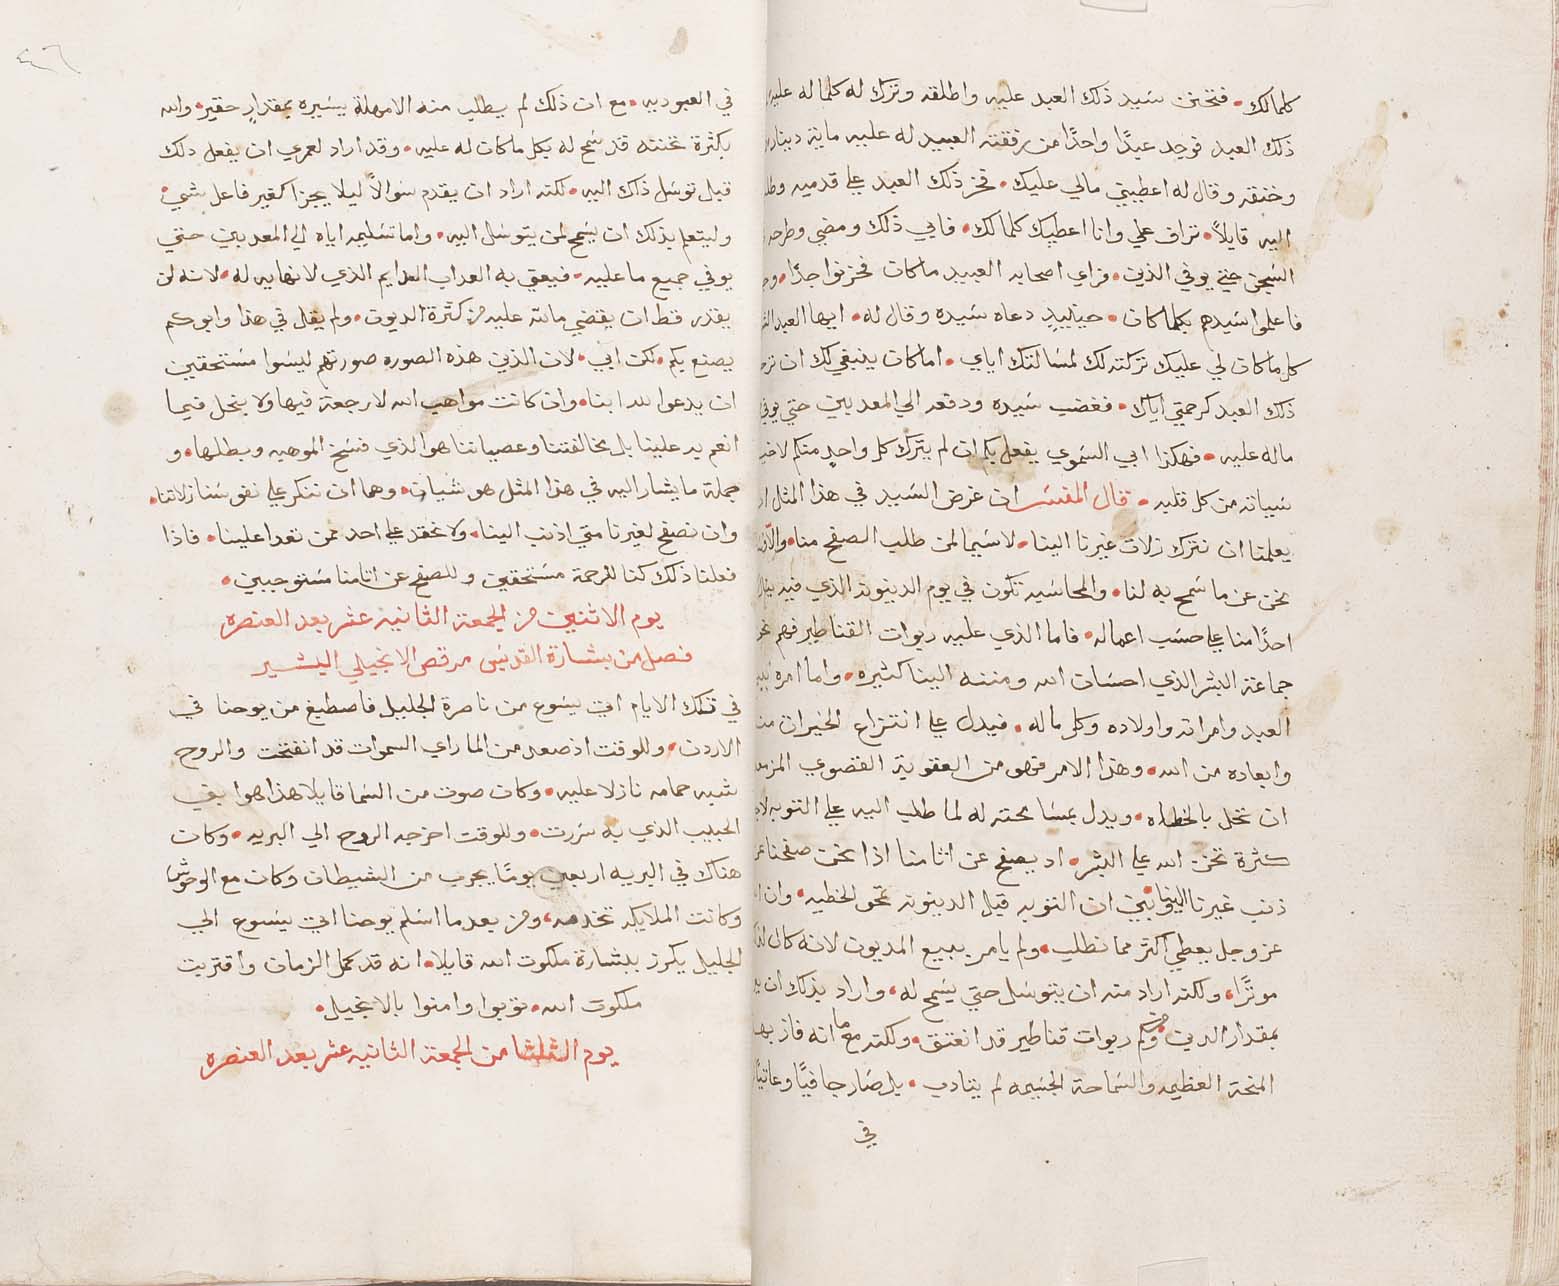 كلمالك. فتحنن سيد ذلك العبد عليه واطلقه وترك له كلما له عليه
ذلك العبد فوجد عبدًا واحدًا من رفقته العبيد له عليه ماية دينار
وخنقه وقال له اعطيني مالي عليك. فخر ذلك العبد على قدميه وطلب
اليه قايلاً. تراف علي وانا اعطيك كلمالك. فابي ذلك ومضي وطرحه
السجن حتي يوفي الدين. فراي اصحابه العبيد ماكان فحزنوا جدًا.
فاعلموا سيدهم بكلما كان. حينيدٍ دعاه سيده وقال له. ايها العبد
كل ماكان لي عليك تركته لك لمسالتك اياي. اما كان ينبغي لك ان ترحم
ذلك العبد كرحمتي اياك. فغضب سيده ودفعه الي المعدبين حتي يوفي
ماله عليه. فهكذا ابي السموي يفعل بكم ان لم يترك كل واحدٍ منكم لاخيه
سياته من كل قلبه. قال المفسر ان غرض السيد في هذا المثل ان
يعلمنا ان نترك زلات غيرنا الينا. لاسيما لمن طلب الصفح منا. والا
نحن عن ما سمح به لنا. والمحاسبه تكون في يوم الدينونة الذي فيه
احدًا منا علي حسب اعماله. فاما الذي عليه ربوات القناطير فهم نحن
جماعة البشر الذي احسانات الله ومننه الينا كثيره. واما امره ببيع
العبد وامراته واولاده وكل ماله. فيدل علي انتزاع الخيرات منه
وابعاده من الله. وهذا الامر فهو من العقوبة القصوي المزمعه
ان تحل بالخطاه. ويدل بمسامحته له لما طلب اليه علي التوبه
كثرة تحنن الله علي البشر. اد يصفح عن اثامنا اذا نحن صفحنا عن
ذنب غيرنا الينا. ان التوبه قبل الدينونه تمحو الخطيه. وان الله
عز وجل يعطي اكثر مما نطلب. ولم يامر ببيع المديون لانه كان
موثرًا. ولكنه اراد منه ان يتوسل حتي يسمح له. واراد بذلك ان
بمقدار الدين وكم ربوات قناطير قد انعتق. ولكنه مع ما انه فاز بهذه
المنحة العظيمه والسماحة الجسيمه لم يتادب. بل صار جافيًا وعاتيًا
في
في العبوديه. مع ان ذلك لم يطلب منه الامهلة يسيره بمقدارٍ حقير. والله
بكثرة تحننه قد سمح له بكل ماكان له عليه. وقد اراد لعمري ان يفعل دلك
قبل توسل ذاك اليه. لكنه اراد ان يقدم سوالاً ليلا يجزا كغير فاعل شي
وليتعلم بذلك ان يسمح لمن يتوسل اليه. واما تسليمه اياه الي المعدبين حتي
يوفي جميع ما عليه. فيعني به العداب الدايم الذي لانهايه له. لانه لن
يقدر قط ان يقضي مالله عليه من كثرة الديون. ولم يقل في هذا وابوكم
يصنع بكم. لكن ابي. لان الذين هذه الصوره صورتهم ليسوا مستحقين
ان يدعوا لله ابنا. وان كانت مواهب الله لارجعة فيها ولا يبخل فيما
انعم به علينا بل مخالفتنا وعصياننا هو الذي فسخ الموهبه وبطلها. و
جملة مايشار اليه في هذا المثل هو شيان. وهما ان نتكر علي نفوسنا زلاتنا.
وان نصفح لغيرنا متي اذنب الينا. ولا نحقد علي احد ممن تعدا علينا. فاذا
فعلنا ذلك كنا للرحمة مستحقين وللصفح عن اثامنا مستوجبين.
يوم الاثنين من الجمعة الثانية عشر بعد العنصره
فصل من بشارة القديس مرقص الانجيلي البشير
في تلك الايام اتي يسوع من ناصرة الجليل فاصطبغ من يوحنا في
الاردن. وللوقت اذ صعد من الما راي السموات قد انفتحت والروح
شبه حمامه نازلا عليه. وكان صوت من السما قايلا هذا هو ابني
الحبيب الذي به سررت. وللوقت اخرجه الروح الي البريه. وكان
هناك في البريه اربعين يومًا يجرب من الشيطان وكان مع الوحوش
وكانت الملايكه تخدمه. ومن بعد ما اسلم يوحنا اتي يسوع الي
الجليل يكرز ببشارة ملكوت الله قايلا. انه قد كمل الزمان واقتربت
ملكوت الله. توبوا وامنوا بالانجيل.
يوم الثلثا من الجمعة الثانيه عشر بعد العنصره